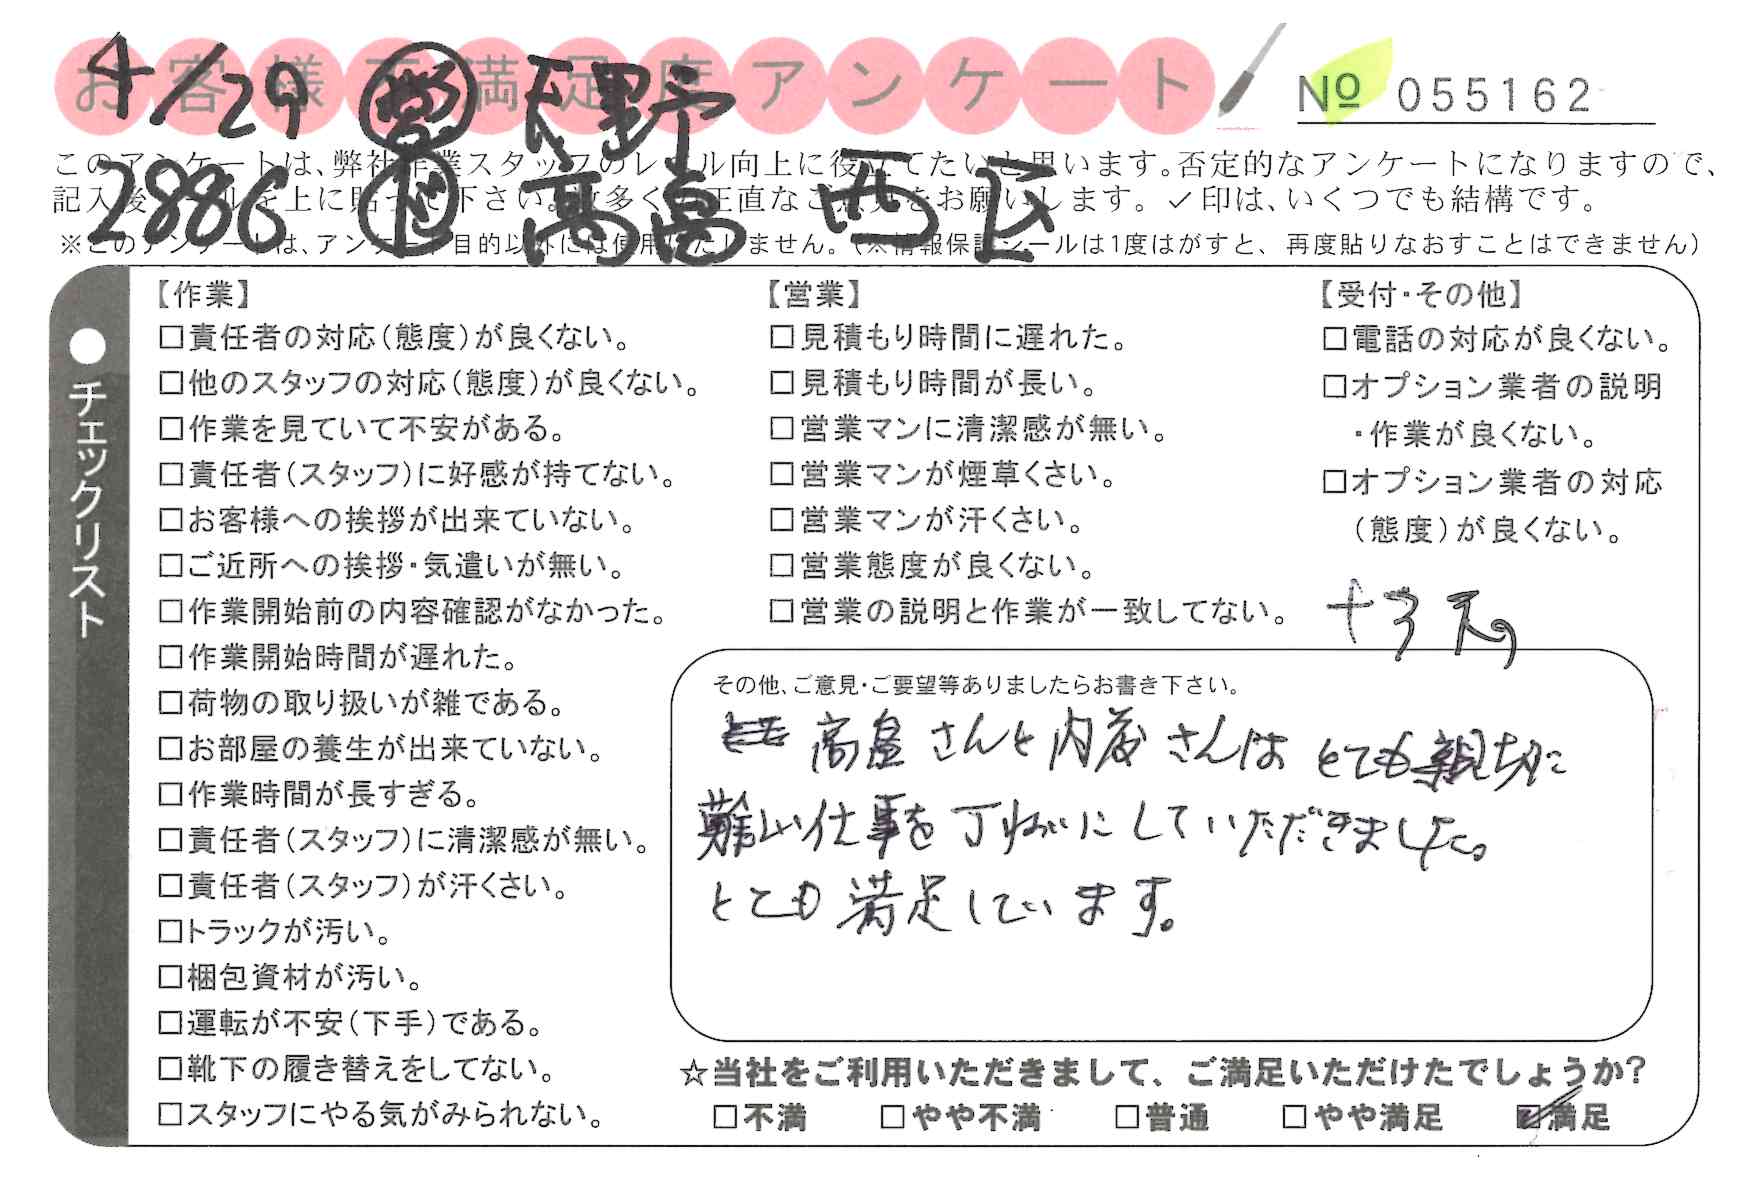 お客様不満足度アンケート
№ 055162
4/29 営 天野
2886 作 高畠 西区
このアンケートは、弊社作業スタッフのレベル向上に役立てたいと思います。否定的なアンケートになりますので、
記入後シールを上に貼って下さい。数多くの正直なご意見をお願いします。✓印は、いくつでも結構です。
※このアンケートは、アンケート目的以外には使用いたしません。(※情報保護シールは1度はがすと、再度貼りなおすことはできません)
●チェックリスト
【作業】
□責任者の対応(態度)が良くない。
□他のスタッフの対応(態度)が良くない。
□作業を見ていて不安がある。
□責任者(スタッフ)に好感が持てない。
□お客様への挨拶が出来ていない。
□ご近所への挨拶・気遣いが無い。
□作業開始前の内容確認がなかった。
□作業開始時間が遅れた。
□荷物の取り扱いが雑である。
□お部屋の養生が出来ていない。
□作業時間が長すぎる。
□責任者(スタッフ)に清潔感が無い。
□責任者(スタッフ)が汗くさい。
□トラックが汚い。
□梱包資材が汚い。
□運転が不安(下手)である。
□靴下の履き替えをしてない。
□スタッフにやる気がみられない。
【営業】
□見積もり時間に遅れた。
□見積もり時間が長い。
□営業マンに清潔感が無い。
□営業マンが煙草くさい。
□営業マンが汗くさい。
□営業態度が良くない。
□営業の説明と作業が一致してない。
【受付・その他】
□電話の対応が良くない。
□オプション業者の説明
・作業が良くない。
□オプション業者の対応
(態度)が良くない。
その他、ご意見・ご要望等ありましたらお書き下さい。
高畠さんと内蔵さんは とても親切に
難しい仕事を丁ねいにしていただきました。
とても満足しています。
☆当社をご利用いただきまして、ご満足いただけたでしょうか?
□不満 □やや不満 □普通 □やや満足 ☑満足